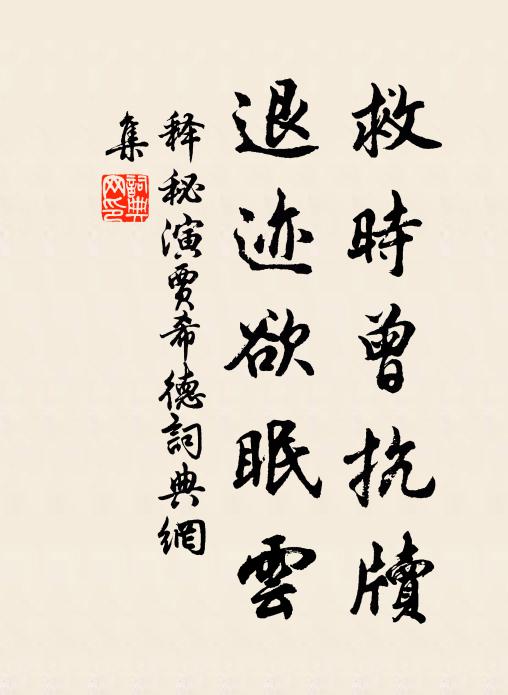 救時曾抗牘
退迹欲眠雲
释秘演賈希德詞典網
集
詞典網印